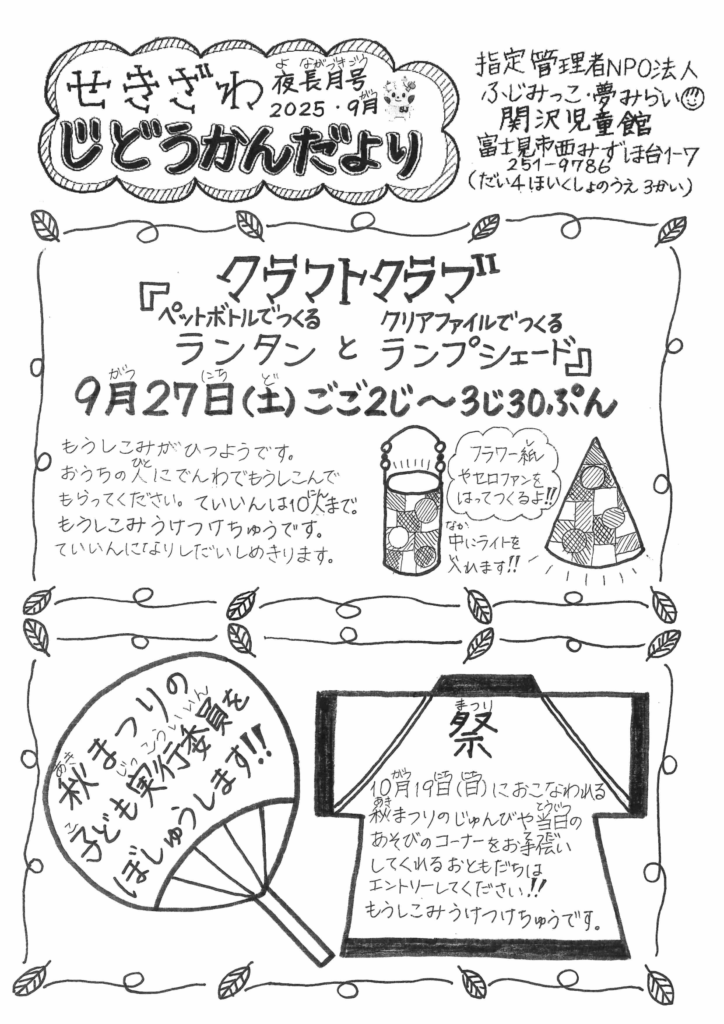 せきざわ
夜長月号
よ ながづきごう
2025・9月
がつ
じどうかんだより
指定管理者NPO法人
ふじみっこ・夢みらい
関沢児童館
富士見市西みずほ台1-7
251-9786
(だい4ほいくしょのうえ 3かい)
クラフトクラブ"
『ペットボトルでつくる
ランタン と
クリアファイルでつくる
ランプシェード』
がつ にち ど
9月27日(土)ごご2じ〜3じ30ぷん
もうしこみがひつようです。
ひと
おうちの人にでんわでもうしこんで
にん
もらってください。ていいんは10人まで。
もうしこみうけつけちゅうです。
ていいんになりしだいしめきります。
フラワー紙
やセロファンを
はってつくるよ!!
なか
中にライトを
入れます!!
あき
秋まつりの
こ じっこういいん
子ども実行委員を
ぼしゅうします!!
まつり
祭
がつ にち にち
10月19日(日)におこなわれる
あき とうじつ
秋まつりのじゅんびや当日の
てつだ
あそびのコーナーをお手伝い
してくれるおともだちは
エントリーしてください!!
もうしこみうけつけちゅうです。